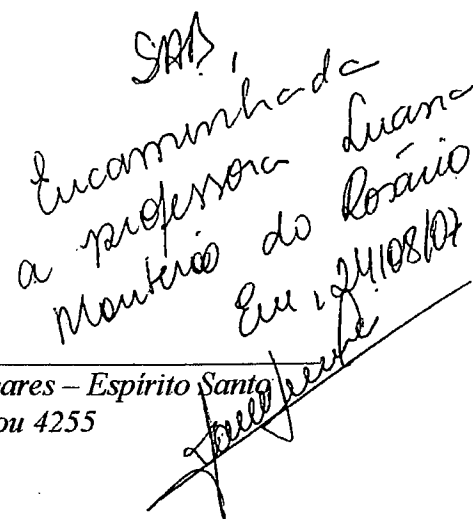 SAB,
Encaminhada
a professora Luana
Monteiro do Rosário
Em, 24/08/07
ares – Espírito Santo
ou 4255